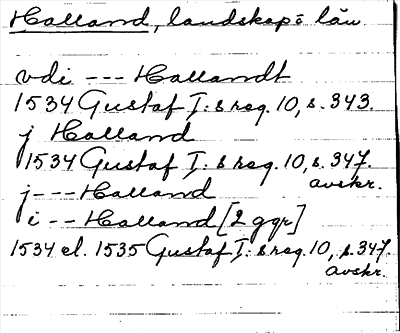 Halland, landskap o län
vdi --- Hallandt
1534 Gustaf I:s reg. 10, s. 343.
j Halland
1534 Gustaf I:s reg. 10, s. 347.
avskr.
j --- Halland
i -- Halland [2 ggr]
1534 el. 1535 Gustaf I:s reg. 10, s. 347.
avskr.